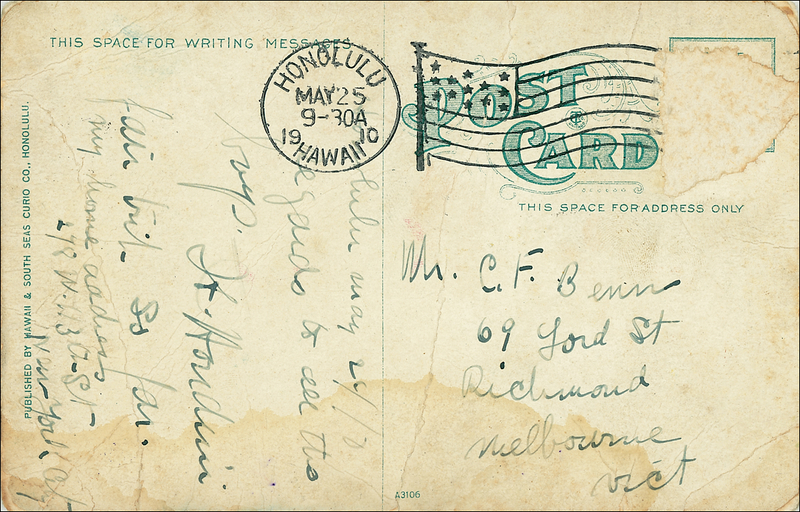 THIS SPACE FOR WRITING MESSAGES
HONOLULU
MAY 25
9-30A
1910
HAWAII
POST
CARD
THIS SPACE FOR ADDRESS ONLY
lulu may 24/10
Regards to all the
boys.
H. Houdini.
fair trip so far.
my home address
278 W. 113 St
New York City
Mr. C. F. Benn
69 Lord St
Richmond
Melbourne
Vict
PUBLISHED BY HAWAII & SOUTH SEAS CURIO CO., HONOLULU.
A3106